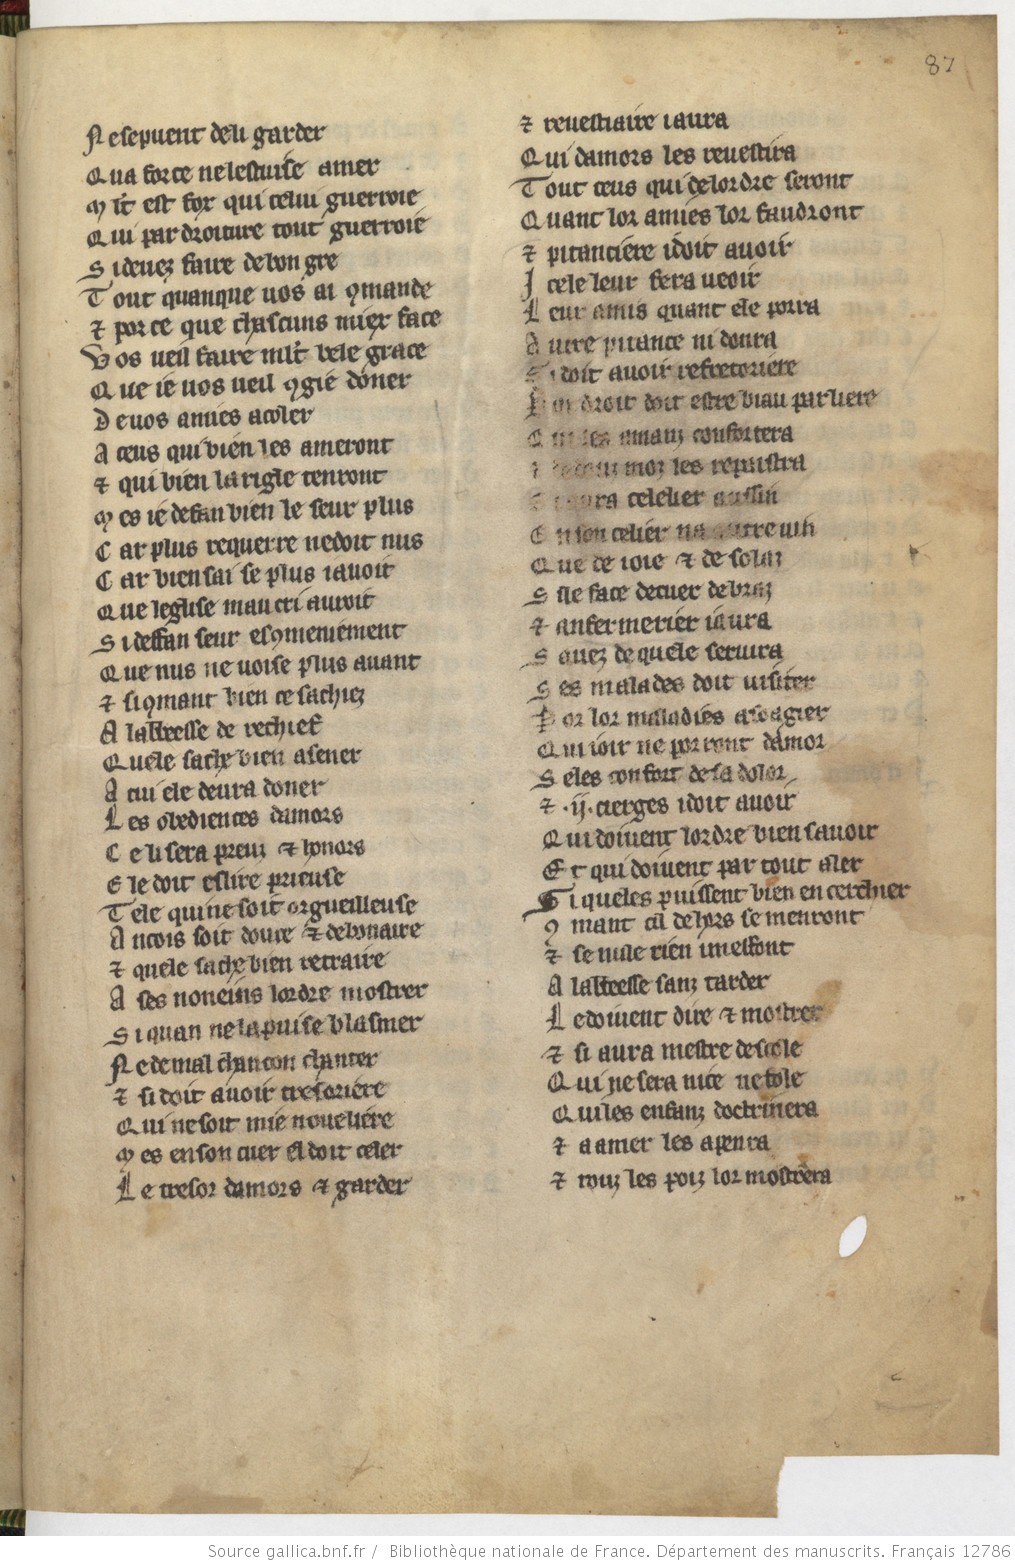 87
Ne sepuent de li garder
Qua force ne lestuise amer
Ml't est fox qui celui guerroie
Qui par droiture tout guerroie
Si deuez faire de bon gre
Tout quanque uos ai ꝯmande
⁊ por ce que chascuns miex face
Vos ueil faire ml't bele grace
Que ie uos ueil ꝯgie doner
De uos amies acoler
A ceus qui bien les ameront
⁊ qui bien la rigle tenront
Mes ie defan bien le seur plus
Car plus requerre ne doit nus
Car bien sai se plus i auoit
Que leglise mau cri auroit
Si deffan seur escꝯmeniement
Que nus ne uoise plus auant
⁊ si ꝯmant bien ce sachiez
A labbeesse de rechief
Quele sache bien asener
A cui ele deura doner
Les obediences damors
Ce li sera preuz ⁊ honors
Ele doit eslire prieuse
Tele qui ne soit orgueilleuse
Ancois soit douce ⁊ debonaire
⁊ quele sache bien retraire
A ses noneins lordre mostrer
Si quan ne la puise blasmer
Ne de mal chancon chanter
⁊ si doit auoir tresoriere
Qui ne soit mie noueliere
Mes en son cuer el doit celer
Le tresor damors ⁊ garder
⁊ reuestiaire i aura
Qui damors les reuestira
Tout ceus qui de lordre seront
Quant lor amies lor faudront
⁊ pitanciere i doit auoir
Icele leur fera ueoir
Leur amis quant ele porra
Autre pitance ni donra
Si doit auoir refretoriere
droit doit estre biau parliere
les amanz confortera
moz les repaistra
aura celelier aussin
En son celier na autre uin
Que de ioie ⁊ de solaz
Sile face de cuer de braz
⁊ anfermerier i aura
Sauez de quele seruira
Ses malades doit uisiter
Por lor maladies asoagier
Qui ioir ne porront damor
Seles confort de sa dolor
⁊ .ij. cierges i doit auoir
Qui doiuent lordre bien sauoir
Et qui doiuent par tout aler
Si queles puissent bien encerchier
ꝯmant cil de hors se menront
⁊ se nule rien i meffont
A labbeesse sanz tarder
Le doiuent dire ⁊ mostrer
⁊ si aura mestre descole
Qui ne sera nice ne fole
Qui les enfanz doctrinera
⁊ a amer les apenra
⁊ touz les poiz lor mostrera
Source gallica.bnf.fr / Bibliothèque nationale de France. Département des manuscrits. Français 12786